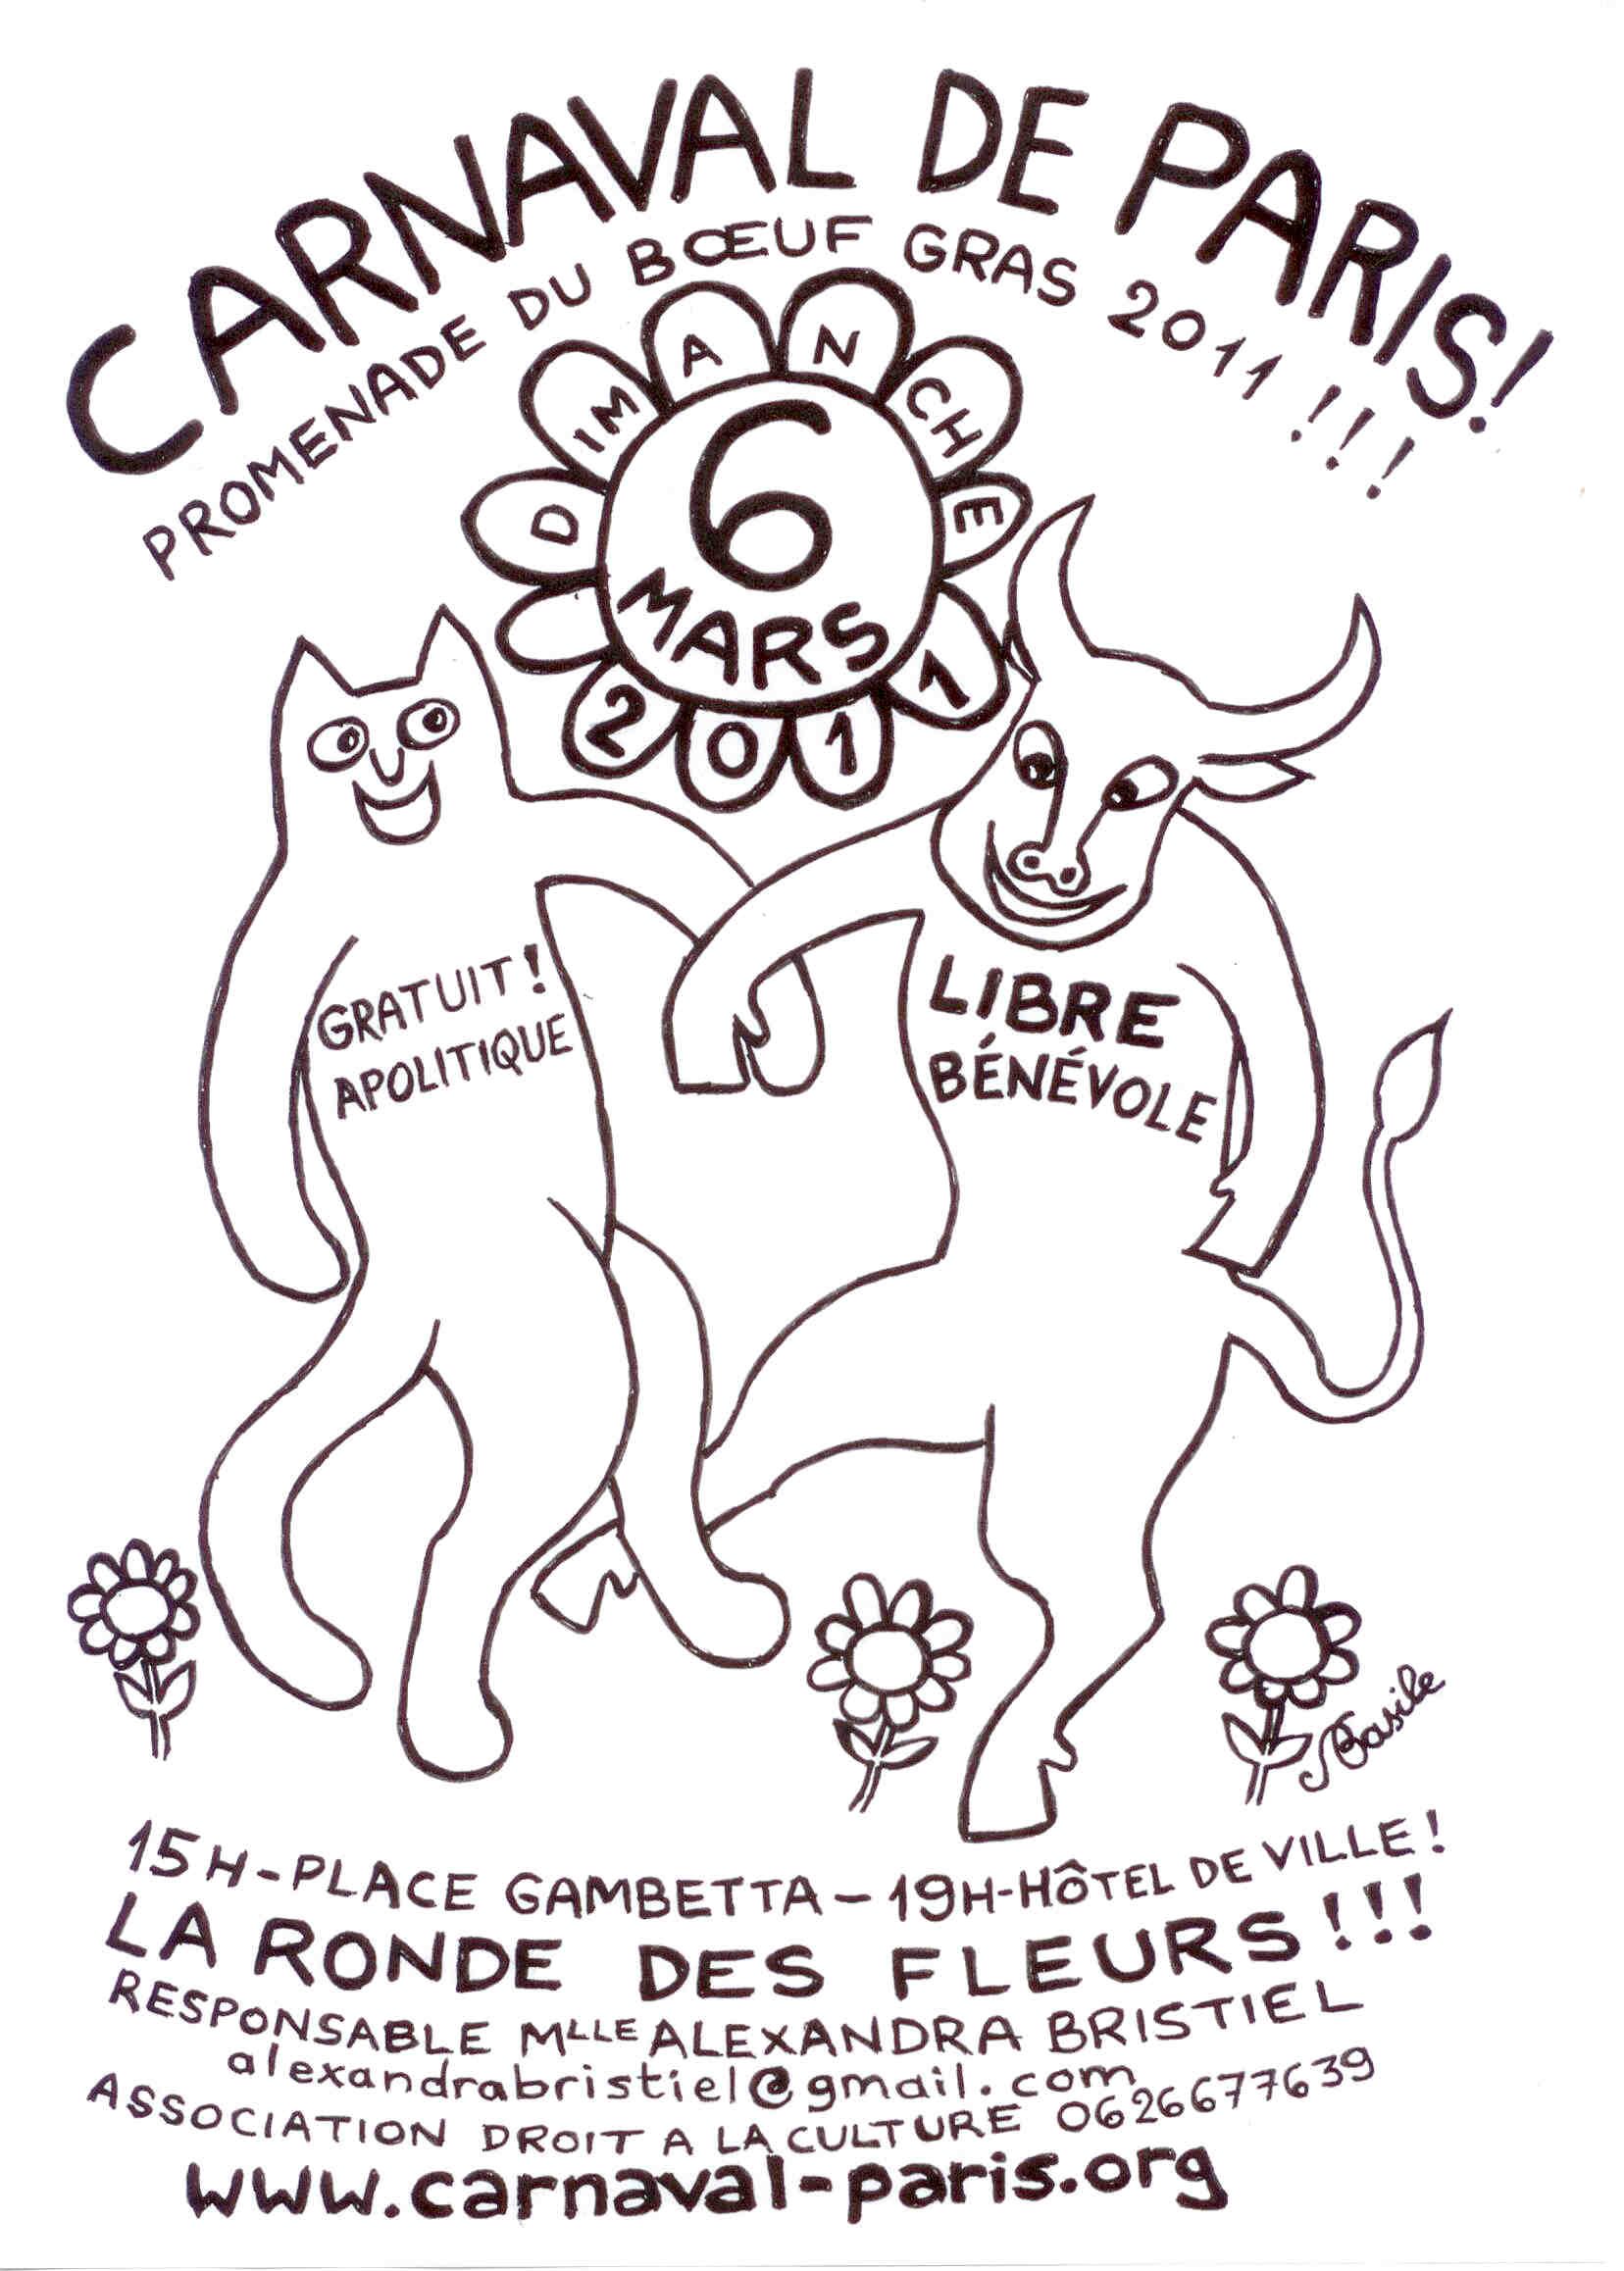 CARNAVAL DE PARIS!
PROMENADE DU BŒUF GRAS 2011 !!!
DIMANCHE
6
MARS
2011
GRATUIT!
APOLITIQUE
LIBRE
BÉNÉVOLE
Basile
15H-PLACE GAMBETTA-19H-HÔTEL DE VILLE!
LA RONDE DES FLEURS!!!
RESPONSABLE MLLE ALEXANDRA BRISTIEL
alexandrabristiel@gmail.com
ASSOCIATION DROIT A LA CULTURE 0626677639
www.carnaval-paris.org